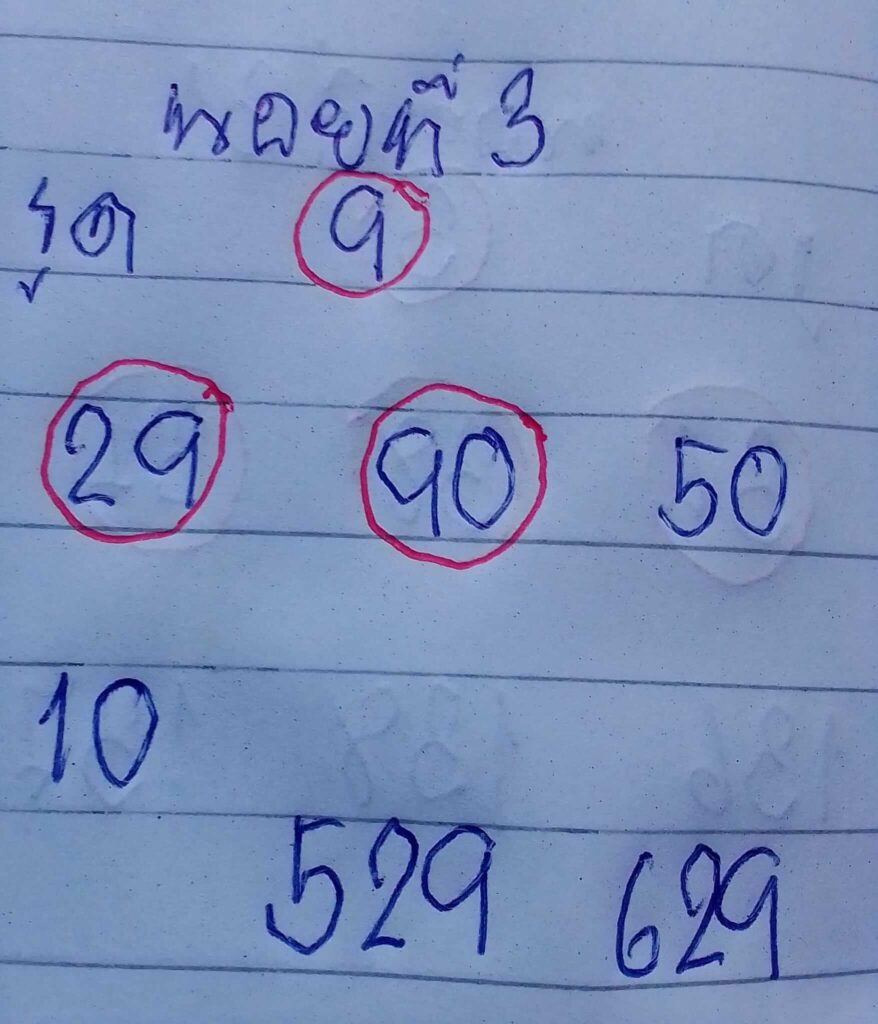 ที่ 3
รูด 9
29 90 50
10
529 629